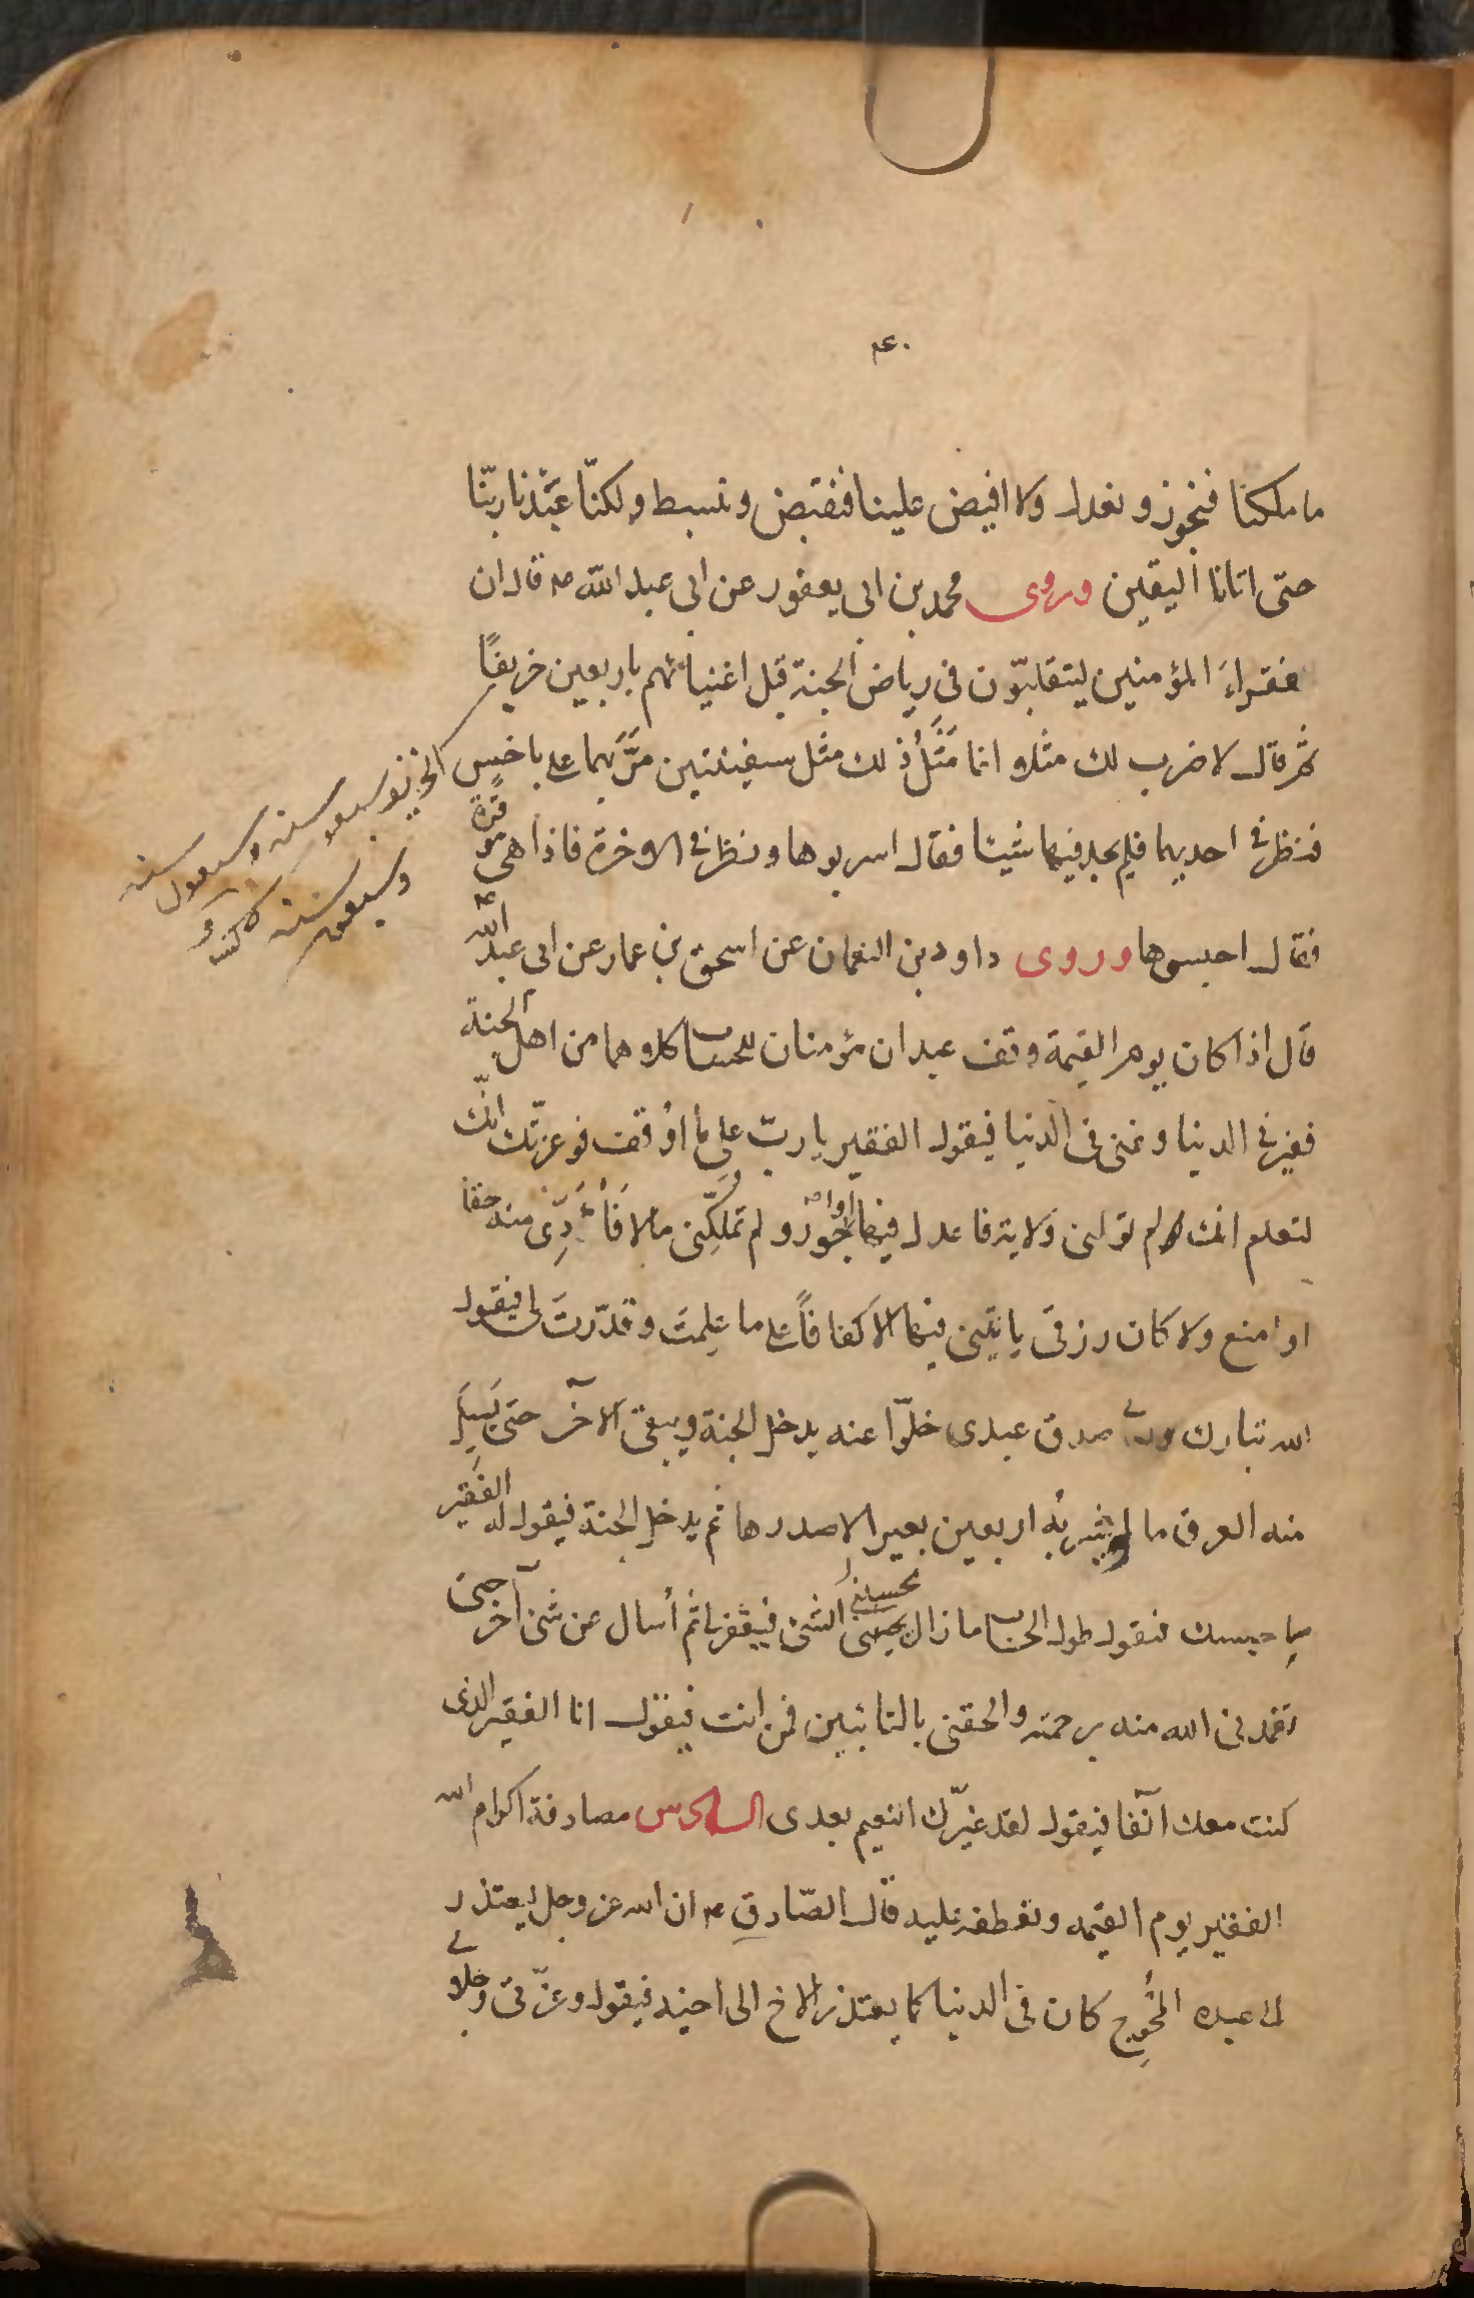 ۴۰
ما ملكنا فنجوز ونعدل ولا افيض علينا فنقبض ونبسط ولكنّا عبدنا ربّنا
حتى اتانا اليقين وروى محمد بن ابى يعفور عن ابى عبد الله ع قال ان
فقراءَ المؤمنين ليتقلبّون فى رياض الجنة قبل اغنيائهم باربعين خريفًا
ثم قال لاضرب لك مثلا انما مَثَلُ ذلك مثل سفينتين مَرَّ بهما على باخس
فنظر فى احديهما فلم يجد فيها شيئا فقال اسربوها ونظر فى الاخرة فاذا هى موقرة
فقال احبسوها وروى داود بن النعمان عن اسحق بن عمار عن ابى عبد الله ع
قال اذا كان يوم القيمة وقف عبدان مؤمنان للحساب كلاهما من اهل الجنة
فقير فى الدنيا وغنى فى الدنيا فيقول الفقير يا ربّ على ما اُوقف فوعزّتك انّك
لتعلم انك لم تولنى ولاية فاعدل فيها او اجور ولم تملّكنى مالا فاُؤَدِّى منه حقا
او امنع ولا كان رزقى ياتينى فيها الا كفافًا على ما علمتَ وقدّرتَ لى فيقول
الله تبارك وتعالى صدق عبدى خلّوا عنه يدخل الجنة ويبقى الآخر حتى يَسِيلَ
منه العرق ما لو شربه اربعين بعيرا لاصدرها ثم يدخل الجنة فيقول له الفقير
ما حبسك فيقول طول الحساب ما زال يحبسنى الشئ فيغفر لى ثم اُسال عن شئ آخر حتى
تغمدنى الله منه برحمته والحقنى بالتائبين فمن انت فيقول انا الفقير الذى
كنت معك آنفا فيقول لقد غيّرك النعيم بعدى السادس مصادفة اكرام الله
الفقير يوم القيمه وتعطفه عليه قال الصّادق ع ان الله عز وجل ليعتذر
الى عبده المُحوِج كان فى الدنيا كما يعتذر الاخ الى اخيه فيقول وعزّتى وجلالى
الخريف سبعون سنه وسبعون سنه
وسبعون سنه